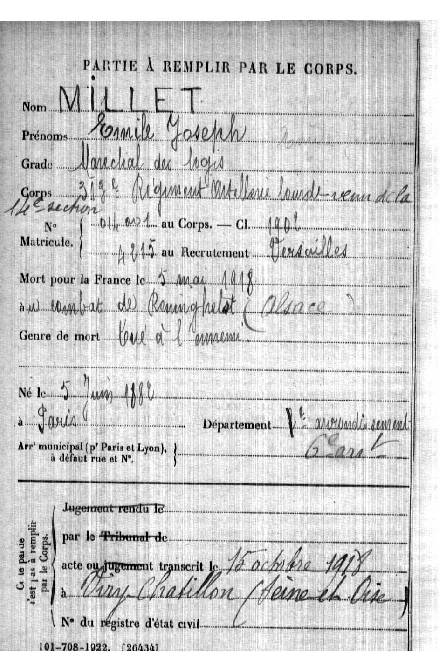 PARTIE À REMPLIR PAR LE CORPS.
Nom MILLET
Prénoms Emile Joseph
Grade Maréchal des logis
Corps 318e Régiment Artillerie lourde venu de la
14e section
N° 04001 au Corps. — Cl. 1902
Matricule.
4215 au Recrutement Versailles
Mort pour la France le 5 mai 1918
à au combat de Reninghelst (Alsace)
Genre de mort Tué à l'ennemi
Né le 5 Juin 1882
à Paris Département 1r arrondissement
Arrt municipal (pr Paris et Lyon), 6e arrt
à défaut rue et N°.
Jugement rendu le
par le Tribunal de
acte ou jugement transcrit le 15 octobre 1918
à Viry Chatillon (Seine et Oise)
N° du registre d'état civil
Cette partie
n'est pas à remplir
par le Corps.
101-708-1922. [26434]